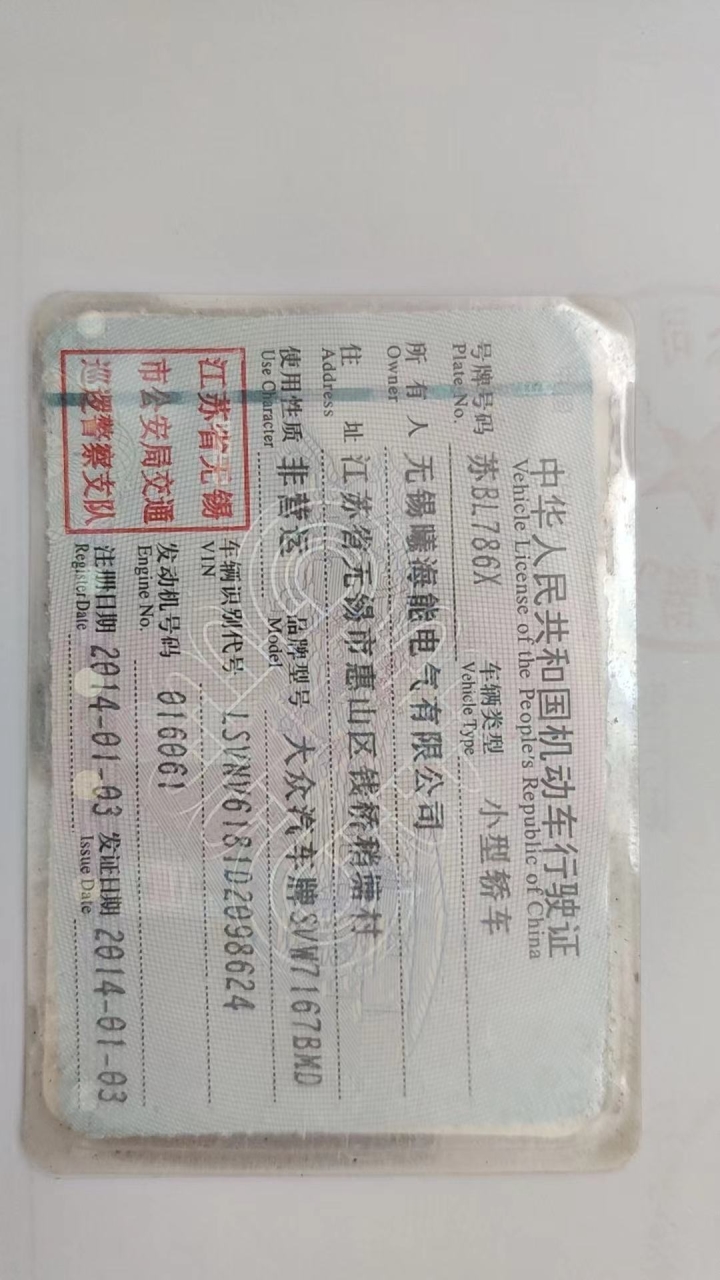 中华人民共和国机动车行驶证
Vehicle License of the People's Republic of China
号牌号码 苏BL786X 车辆类型 小型轿车
Plate No. Vehicle Type
所有人 无锡曦海能电气有限公司
Owner
住址 江苏省无锡市惠山区钱桥稍塘村
Address
使用性质 非营运 品牌型号 大众汽车牌SVW7167BMD
Use Character Model
江苏省无锡
市公安局交通
巡逻警察支队
车辆识别代号 LSVNV6181D2098624
VIN
发动机号码 016061
Engine No.
注册日期 2014-01-03 发证日期 2014-01-03
Register Date Issue Date